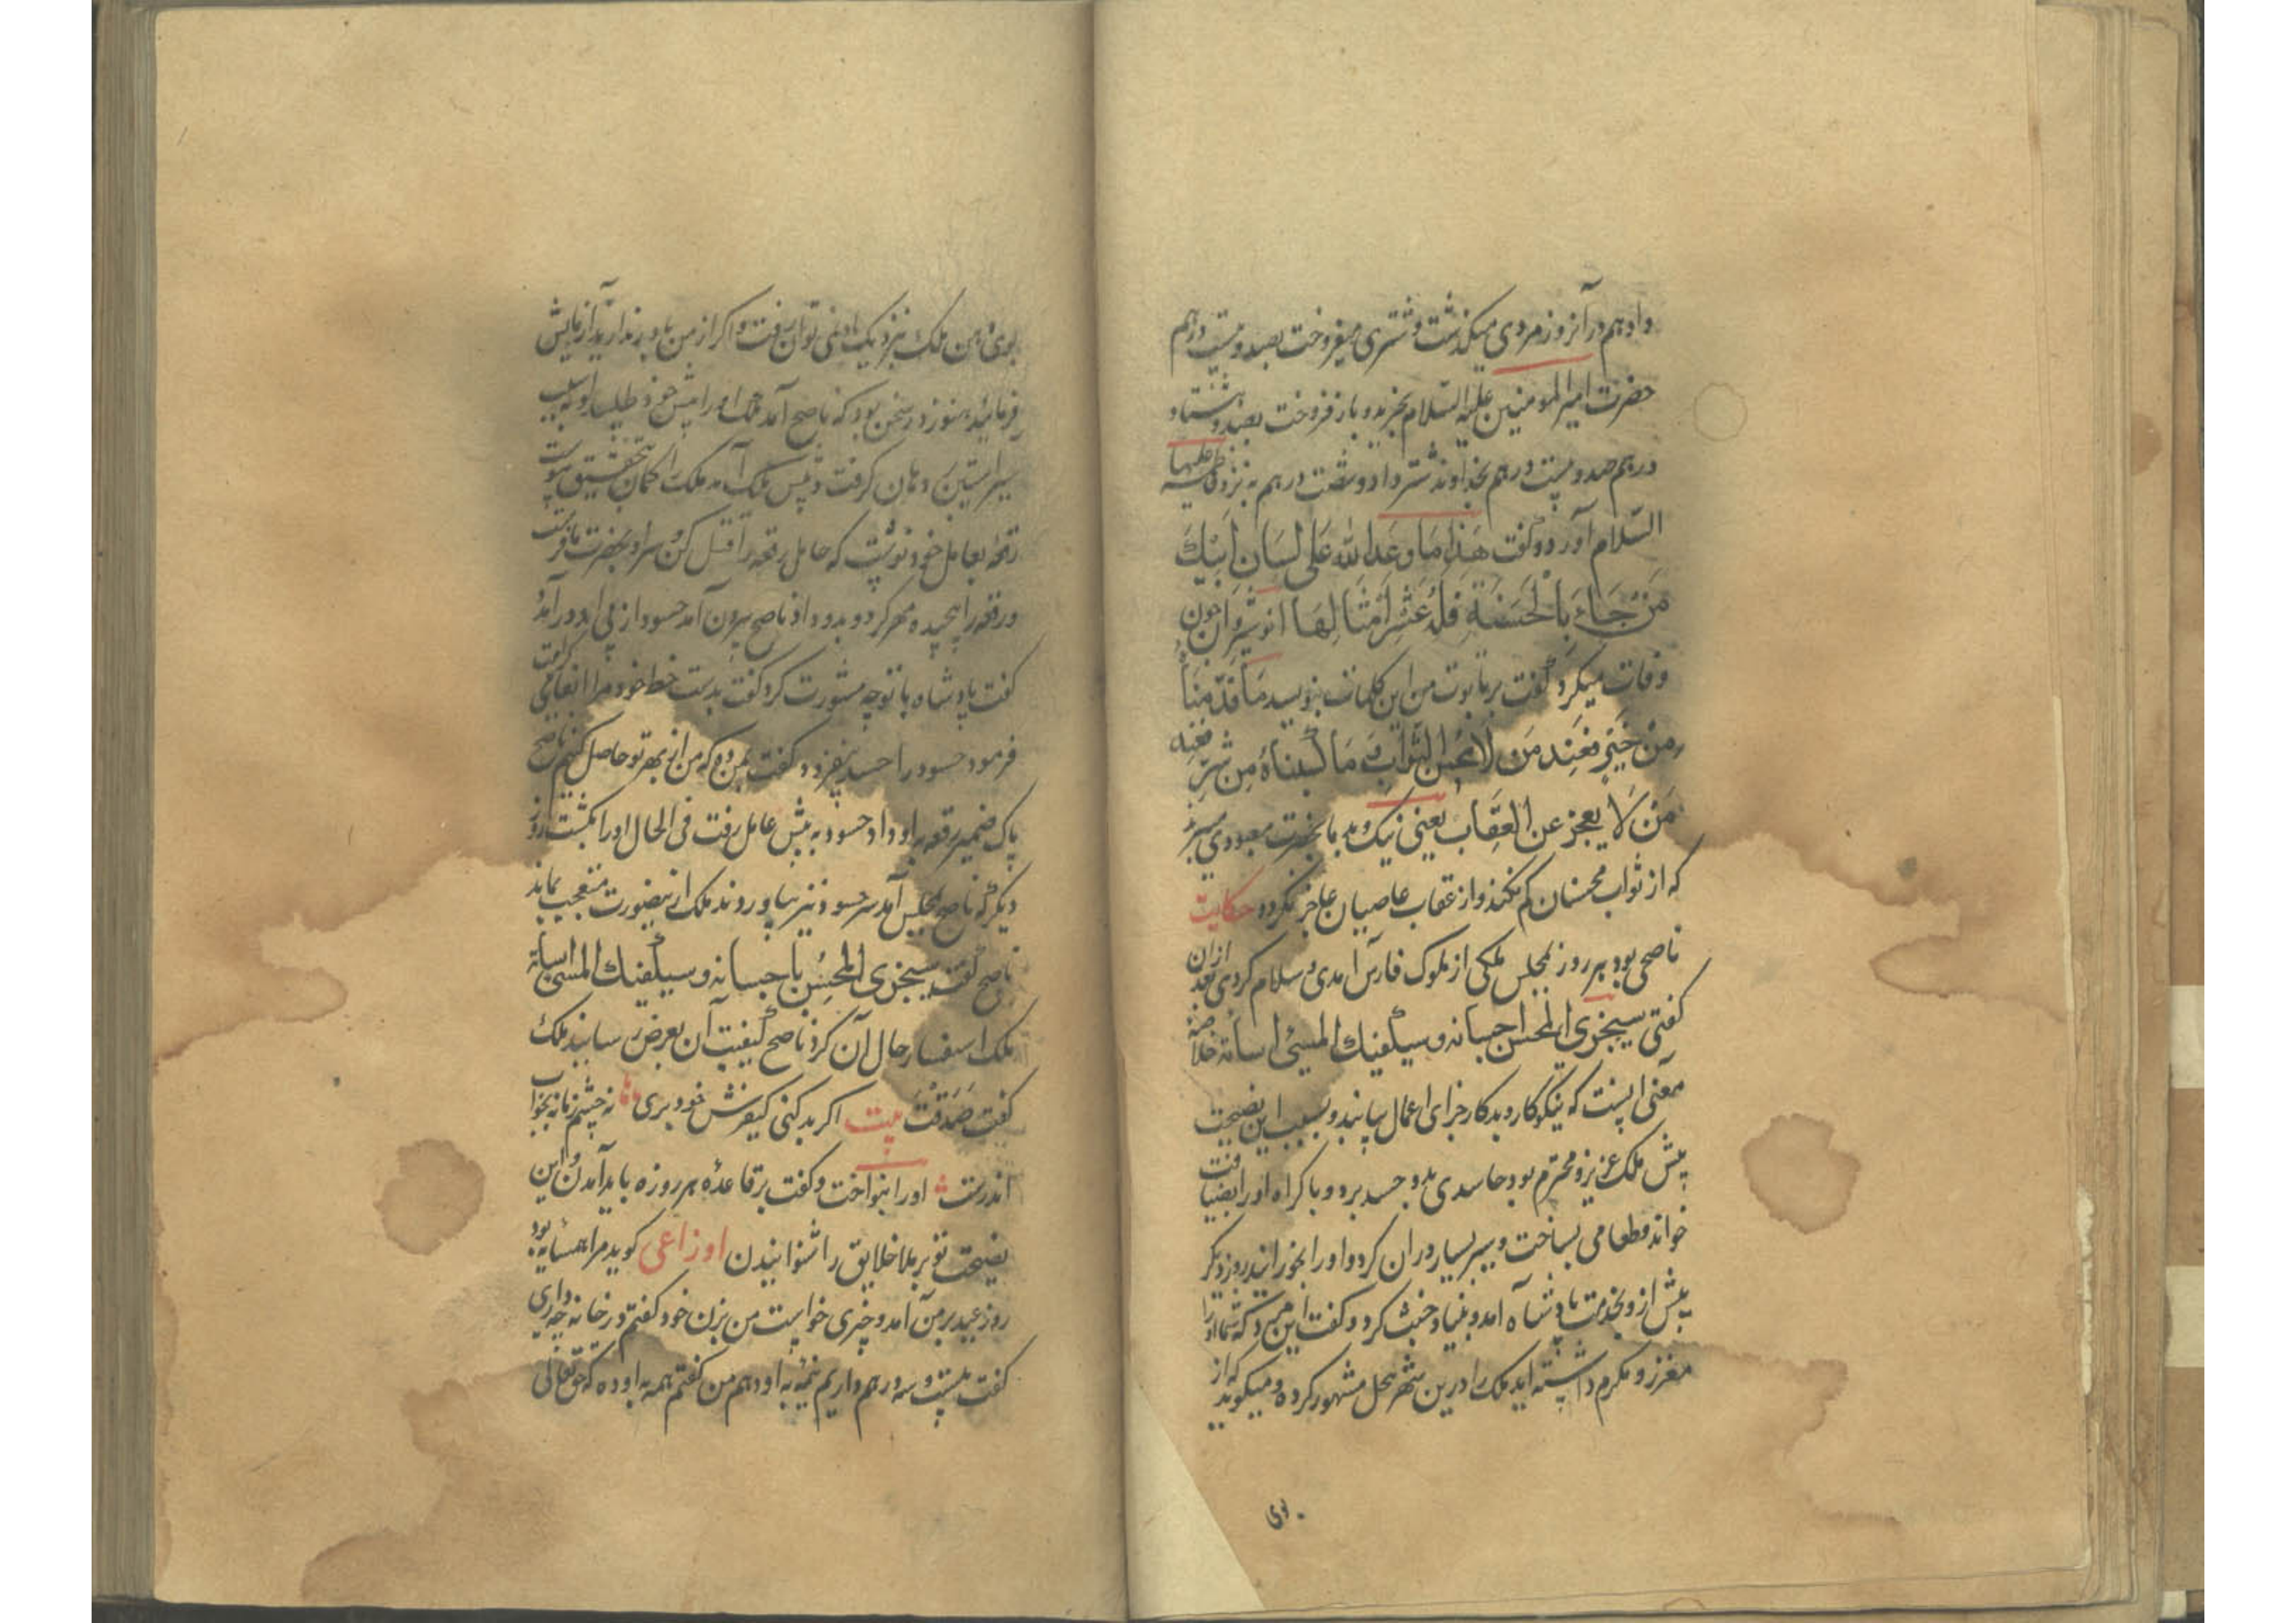 داد هم در آنروز مردی میگذشت و شتری میفروخت بصد و بیست درهم
حضرت امیر المومنین علیه السّلام بخرید و باز فروخت بصد و هشتاد
درهم صد و بیست درهم بخداوند شتر داد و شصت درهم به نزد فاطمه علیها
السّلام آورد و گفت هَذا مَا وعَدَ اللّه عَلی لسَان ابیكَ
مَن جَاءَ بِالْحَسَنَةِ فَلَهُ عَشْرُ اَمْثَالِهَا انوشروان چون
وفات میکرد گفت بر تابوت من این کلمات بنویسید مَا قَدّمنَاهُ
مِنْ خَیْرٍ فَعِند مَن لا یبخس الثواب وَ مَا کسبناهُ مِن شرٍّ فعِند
مَنْ لَا یعجز عن العِقَاب یعنی نیک و بد ما بحضرت معبودی میبرند
که از ثواب محسنان کم نکند و از عقاب عاصیان عاجز نگردد حکایت
ناصحی بود هر روز بمجلس ملکی از ملوک فارس آمدی و سلام کردی بعد ازان
گفتی سیجزی المحسن احسانه و سیکفیك المسئ اساته خلاصهٔ
معنی اینست که نیکوکار و بدکار جزای اعمال یابند و بسبب این نصیحت
پیش ملک عزیز و محترم بود حاسدی بدو حسد برد و باکراه او را بضیافت
خواند و طعامی بساخت و سیر بسیار دران کرد و او را بخورانید روز دیگر
پیش از و بخدمت پادشاه آمد و بنیاد خبث کرد و گفت این مرد که شما او را
معزز و مکرم داشته اید ملک را درین شهر بخل مشهور کرده و میگوید که از
بوی
بوی دهن ملک بنزدیک او نمی توان رفت و اگر از من باور ندارید آزمایش
فرمایید هنوز در سخن بود که ناصح آمد ملک او را پیش خود طلبید او بسبب
سیر آستین بر دهان گرفت و پیش ملک آمد ملک را گمان بتحقیق پیوست
رقعهٔ بعامل خود نوشت که حامل رقعه را قتل کن و سر او بحضرت ما فرست
و رقعه را پیچیده مهر کرد و بدو داد ناصح بیرون آمد حسود از پی او در آمد
گفت پادشاه با تو چه مشورت کرد گفت بدست خط خود مرا انعامی کرامت
فرمود حسود را حسد بیفزود گفت بمن ده که من از بهر تو حاصل کنم ناصح
پاک ضمیر رقعه باو داد حسود به پیش عامل رفت فی الحال او را بکشت روز
دیگر که ناصح بمجلس آمد سر حسود نیز بیاوردند ملک ازینصورت متعجب بماند
ناصح گفت سیجزی المحسن باحسانه و سیکفیك المسئ اساته
ملک استفسار حال آن کرد ناصح کیفیت آن بعرض رسانید ملک
گفت صَدَقْتَ بیت اگر بد کنی کیفرش خود بری ه نه چشم زمانه بخواب
اندرست ه او را بنواخت و گفت بر قاعدهٔ هر روزه باید آمدن و این
نصیحت تو بر ملا خلایق را شنوانیدن اوزاعی گوید مرا همسایه بود
روز عید بر من آمد و چیزی خواست من بزن خود گفتم در خانه چه داری
گفت بیست و سه درهم داریم نیمهٔ به او دهم من گفتم همه به او ده که حق تعالی